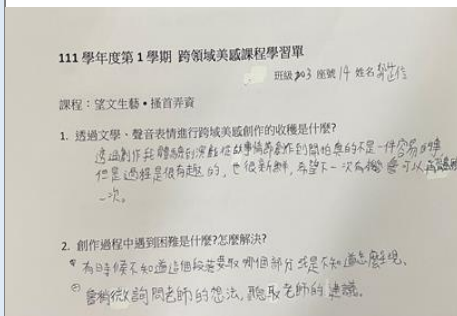 111 學年度第 1 學期 跨領域美感課程學習單
班級 303 座號 14 姓名
課程：望文生藝•搔首弄資
1. 透過文學、聲音表情進行跨域美感創作的收穫是什麼?
透過創作我體驗到演戲從故事情節創作到開拍真的不是一件容易的事
但是過程是很有趣的，也很新鮮，希望下一次有機會可以再
一次。
2. 創作過程中遇到困難是什麼?怎麼解決?
有時候不知道這個段落要取哪個部分 或是不知道怎麼呈現、
會稍微詢問老師的想法，聽取老師的建議。